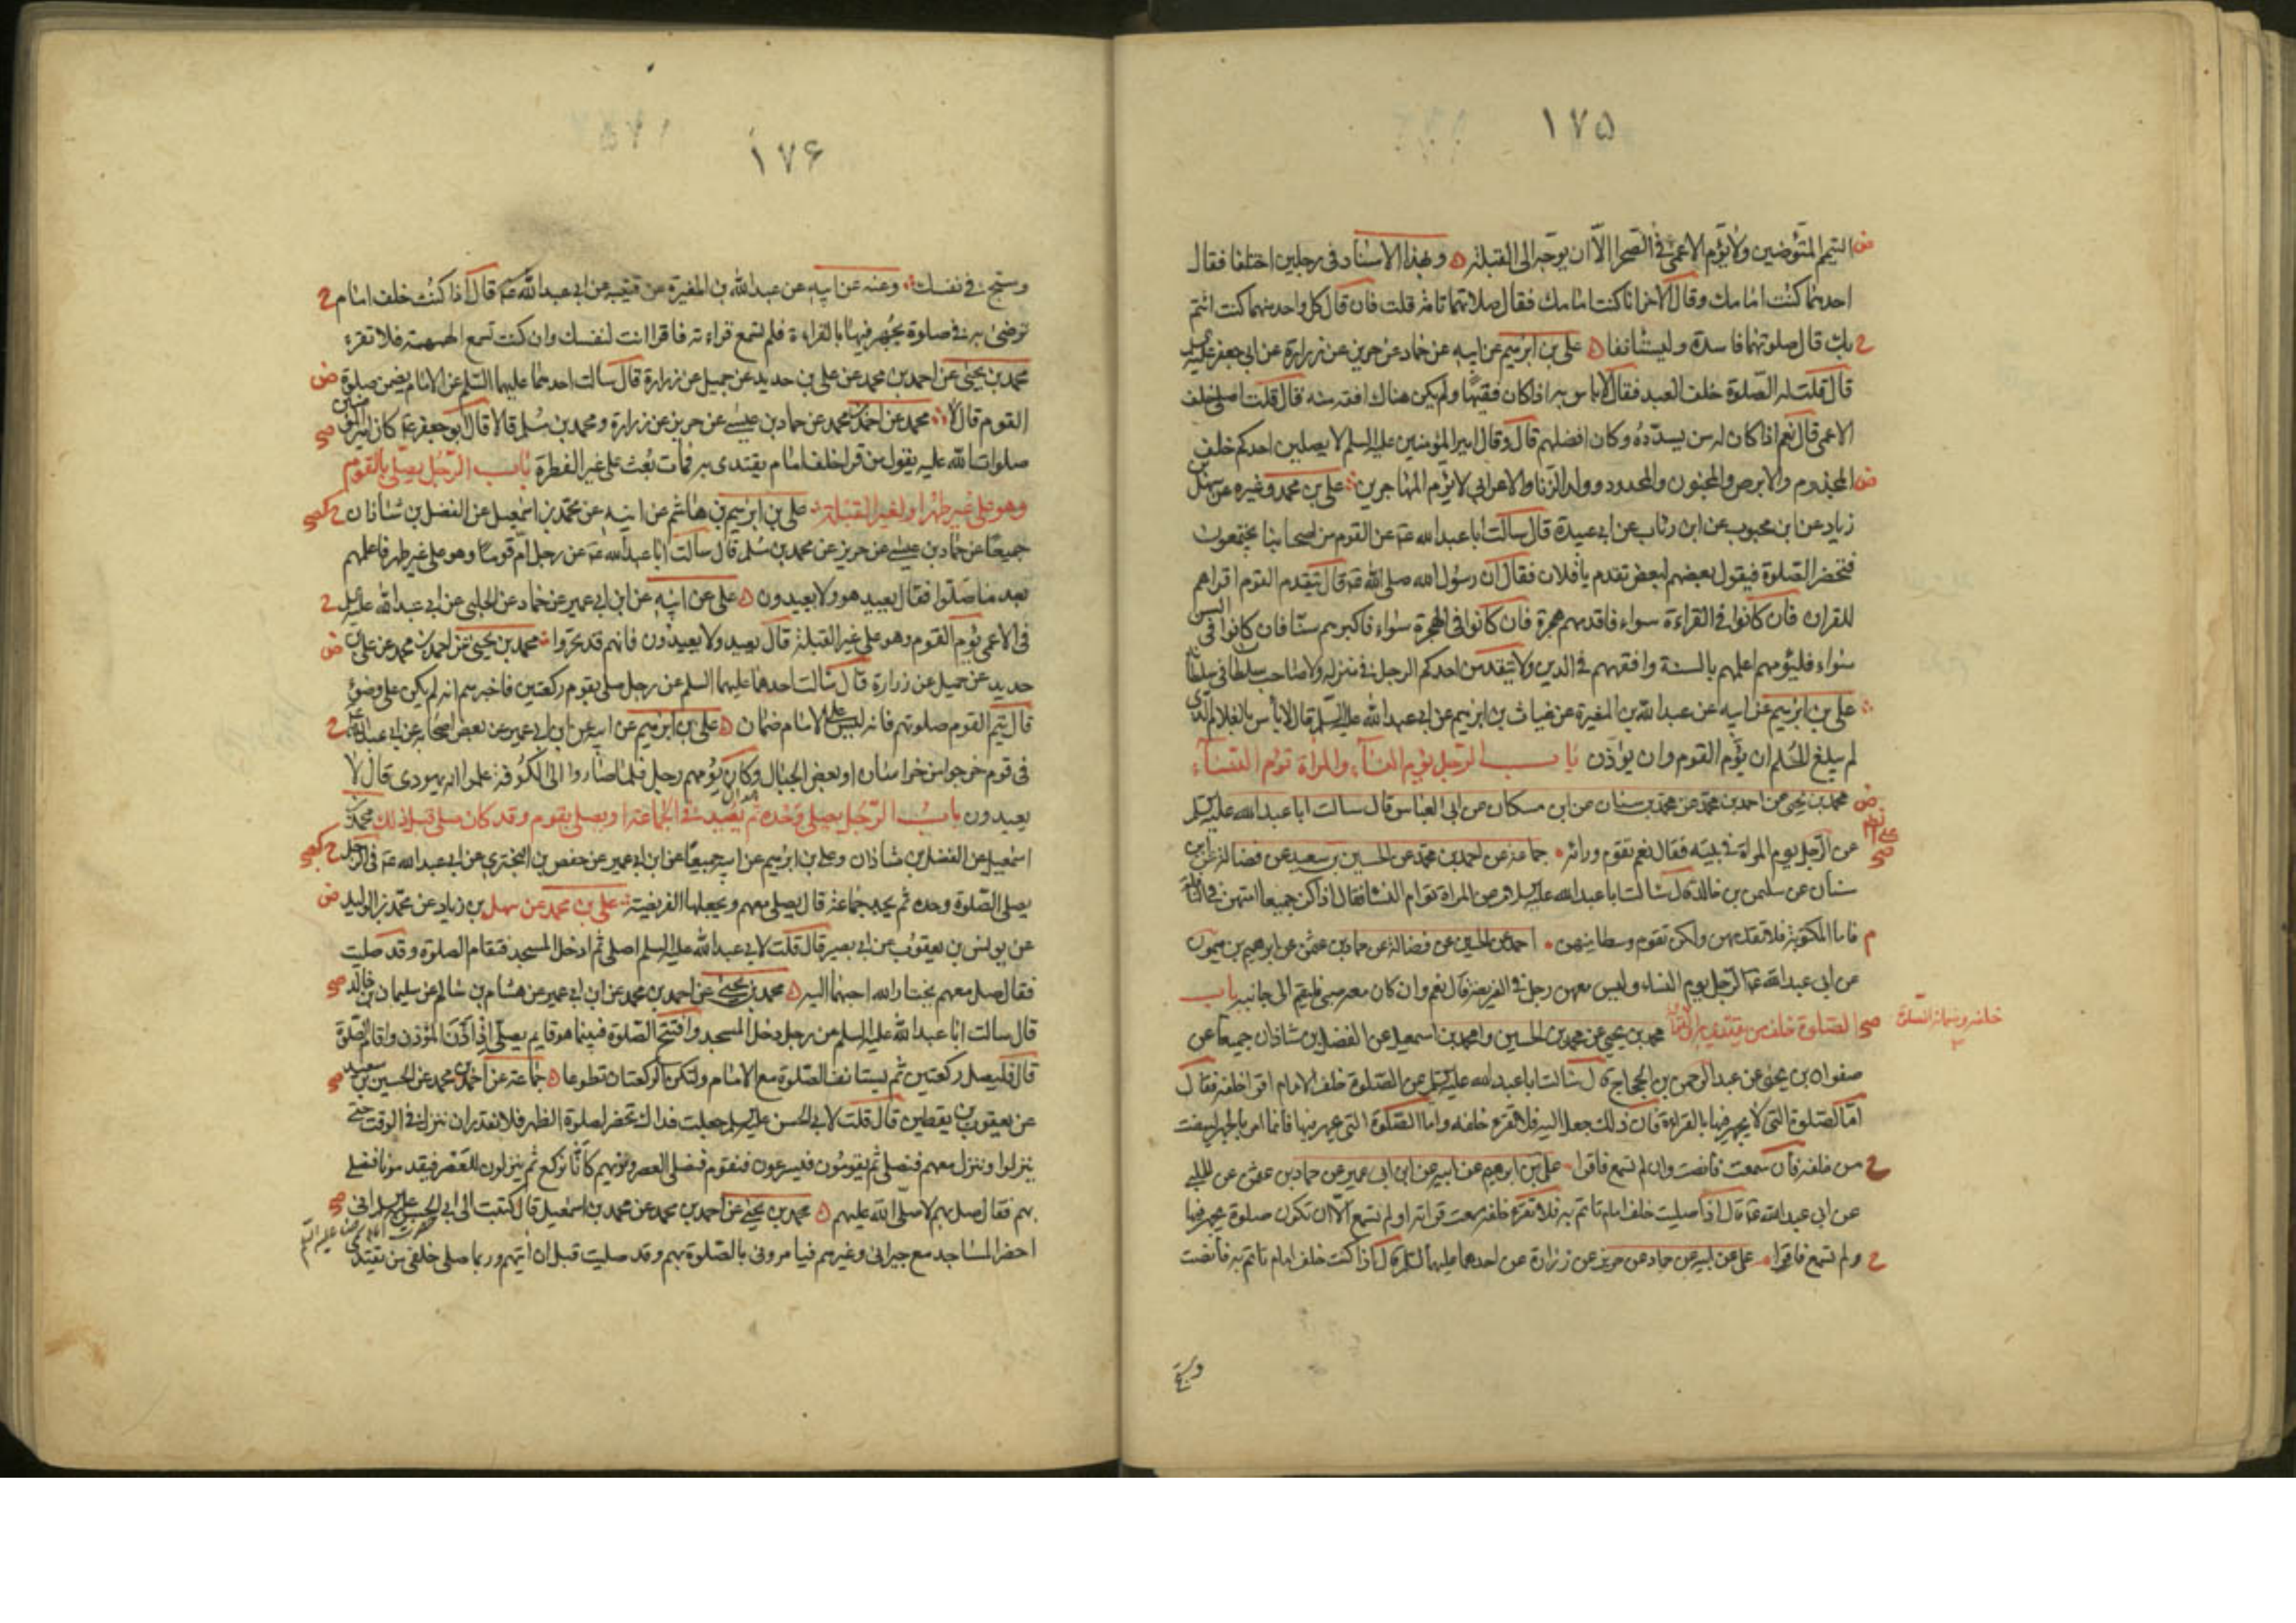 ١٧٥
المتيمم المتوضين ولا يؤم الاعمى في الصحرا الا ان يوجه الى القبلة وبهذا الاسناد في رجلين اختلفا فقال
احدهما كنت امامك وقال الاخر انا كنت امامك فقال صلاتهما تامة قلت فان قال كل واحد منهما كنت ائتم
بك قال صلوتهما فاسدة وليستانفا علي بن ابرهيم عن ابيه عن حماد عن حريز عن زرارة عن ابي جعفر عليه السلم
قال قلت له الصلوة خلف العبد فقال لا باس به اذا كان فقيها ولم يكن هناك افقه منه قال قلت اصلي خلف
الاعمى قال نعم اذا كان له من يسدده وكان افضلهم قال وقال امير المؤمنين عليه السلم لا يصلين احدكم خلف
المجذوم والابرص والمجنون والمحدود وولد الزنا والاعرابي لا يؤم المهاجرين علي بن محمد وغيره عن سهل بن
زياد عن ابن محبوب عن ابن رئاب عن ابي عبيدة قال سالت ابا عبد الله عه عن القوم من اصحابنا يجتمعون
فتحضر الصلوة فيقول بعضهم لبعض تقدم يا فلان فقال ان رسول الله صلى الله قه قال يتقدم القوم اقراهم
للقران فان كانوا في القراءة سواء فاقدمهم هجرة فان كانوا في الهجرة سواء فاكبرهم سنا فان كانوا في السن
سواء فليؤمهم اعلمهم بالسنة وافقههم في الدين ولا يتقدمن احدكم الرجل في منزله ولا صاحب سلطان في سلطانه
علي بن ابرهيم عن ابيه عن عبد الله بن المغيرة عن غياث بن ابرهيم عن ابي عبد الله عليه السلم قال لا باس بالغلام الذي
لم يبلغ الحلم ان يؤم القوم وان يؤذن باب الرجل يؤم النساء والمراة تؤم النساء
محمد بن يحيى عن احمد بن محمد عن محمد بن سنان عن ابن مسكان عن ابي العباس قال سالت ابا عبد الله عليه السلم
عن الرجل يوم المراة في بيته فقال نعم تقوم وراءه جماعة عن احمد بن محمد عن الحسين بن سعيد عن فضالة عن ابن
سنان عن سليمن بن خالد قال سالت ابا عبد الله عليه السلام عن المراة تؤم النسا فقال اذا كن جميعا امتهن في النافلة
فاما المكتوبة فلا تقدمهن ولكن تقوم وسطا بينهن احمد عن الحسين عن فضالة عن حماد بن عثمن عن ابرهيم بن ميمون
عن ابي عبد الله عه الرجل يوم النساء وليس معهن رجل في الفريضة قال نعم وان كان معه صبي فليقم الى جانبه باب
الصلوة خلف من يقتدى به محمد بن يحيى عن محمد بن الحسين ومحمد بن اسمعيل عن الفضل بن شاذان جميعا عن
صفوان بن يحيى عن عبد الرحمن بن الحجاج قال سالت ابا عبد الله عليه السلم عن الصلوة خلف الامام اقرا خلفه فقال
اما الصلوة التي لا يجهر فيها بالقراءة فان ذلك جعل اليه فلا تقرء خلفه واما الصلوة التي يجهر فيها فانما امر بالجهر لينصت
من خلفه فان سمعت فانصت وان لم تسمع فاقرا علي بن ابرهيم عن ابيه عن ابن ابي عمير عن حماد بن عثمن عن الحلبي
عن ابي عبد الله عه قال اذا صليت خلف امام تاتم به فلا تقرء خلفه سمعت قراته او لم تسمع الا ان تكون صلوة يجهر فيها
ولم تسمع فاقرا علي عن ابيه عن حماد عن حريز عن زرارة عن احدهما عليهما السلم قال اذا كنت خلف امام تاتم به فانصت
وسبح
١٧۶
وسبح في نفسك وعنه عن ابيه عن عبد الله بن المغيرة عن قتيبة عن ابي عبد الله عه قال اذا كنت خلف امام
ترضى به في صلوة يجهر فيها بالقراءة فلم تسمع قراءته فاقرا انت لنفسك وان كنت تسمع الهمهمة فلا تقرء
محمد بن يحيى عن احمد بن محمد عن علي بن حديد عن جميل عن زرارة قال سالت احدهما عليهما السلم عن الامام يضمن صلوة
القوم قال لا محمد عن احمد بن محمد عن حماد بن عيسى عن حريز عن زرارة ومحمد بن مسلم قالا قال ابو جعفر عه كان امير المؤمنين
صلوات الله عليه يقول من قرا خلف امام يقتدى به فمات بعث على غير الفطرة باب الرجل يصلي بالقوم
وهو على غير طهر او لغير القبلة علي بن ابرهيم بن هاشم عن ابيه عن محمد بن اسمعيل عن الفضل بن شاذان
جميعا عن حماد بن عيسى عن حريز عن محمد بن مسلم قال سالت ابا عبد الله عه عن رجل ام قوما وهو على غير طهر فاعلمهم
بعد ما صلوا فقال يعيد هو ولا يعيدون علي عن ابيه عن ابن ابي عمير عن حماد عن الحلبي عن ابي عبد الله عليه السلم
في الاعمى يؤم القوم وهو على غير القبلة قال يعيد ولا يعيدون فانهم قد تحروا محمد بن يحيى عن احمد بن محمد عن علي بن
حديد عن جميل عن زرارة قال سالت احدهما عليهما السلم عن رجل صلى بقوم ركعتين فاخبرهم انه لم يكن على وضوء
قال يتم القوم صلوتهم فانه ليس على الامام ضمان علي بن ابرهيم عن ابيه عن ابن ابي عمير عن بعض اصحابه عن ابي عبد الله عه
في قوم خرجوا من خراسان او بعض الجبال وكان يؤمهم رجل فلما صاروا الى الكوفة علموا انه يهودي قال لا
يعيدون باب الرجل يصلي وحده ثم يعيد في الجماعة او يصلي بقوم وقد كان صلى قبل ذلك محمد بن
اسمعيل عن الفضل بن شاذان وعلي بن ابرهيم عن ابيه جميعا عن ابن ابي عمير عن حفص بن البختري عن ابي عبد الله عه في الرجل
يصلي الصلوة وحده ثم يجد جماعة قال يصلي معهم ويجعلها الفريضة علي بن محمد عن سهل بن زياد عن محمد بن الوليد
عن يونس بن يعقوب عن ابي بصير قال قلت لابي عبد الله عليه السلم اصلي ثم ادخل المسجد فتقام الصلوة وقد صليت
فقال صل معهم يختار الله احبهما اليه محمد بن يحيى عن احمد بن محمد عن ابن ابي عمير عن هشام بن سالم عن سليمان بن خالد
قال سالت ابا عبد الله عليه السلم عن رجل دخل المسجد وافتتح الصلوة فبينما هو قايم يصلي اذ اذن المؤذن واقام الصلوة
قال فليصل ركعتين ثم يستانف الصلوة مع الامام ولتكن الركعتان تطوعا جماعة عن احمد بن محمد عن الحسين بن سعيد
عن يعقوب بن يقطين قال قلت لابي الحسن عليه السلم جعلت فداك تحضر صلوة الظهر فلا نقدر ان ننزل في الوقت حتى
ينزلوا وننزل معهم فنصلي ثم يقومون فيسرعون فنقوم فنصلي العصر ونريهم كانا نركع ثم ينزلون للعصر فيقدمونا فنصلي
بهم فقال صل بهم لا صلى الله عليهم محمد بن يحيى عن احمد بن محمد عن محمد بن اسمعيل قال كتبت الى ابي الحسن عليه السلم اني
احضر المساجد مع جيراني وغيرهم فيامروني بالصلوة بهم وقد صليت قبل ان اتيهم وربما صلى خلفي من يقتدي